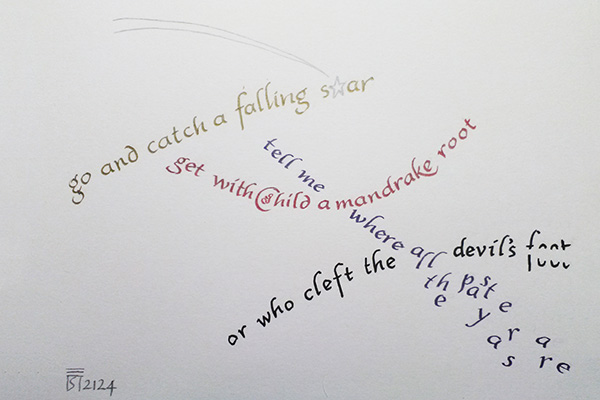 go and catch a falling s☆ar
get with child a mandrake root
tell me where all the past years are
or who cleft the devil's foot
2124